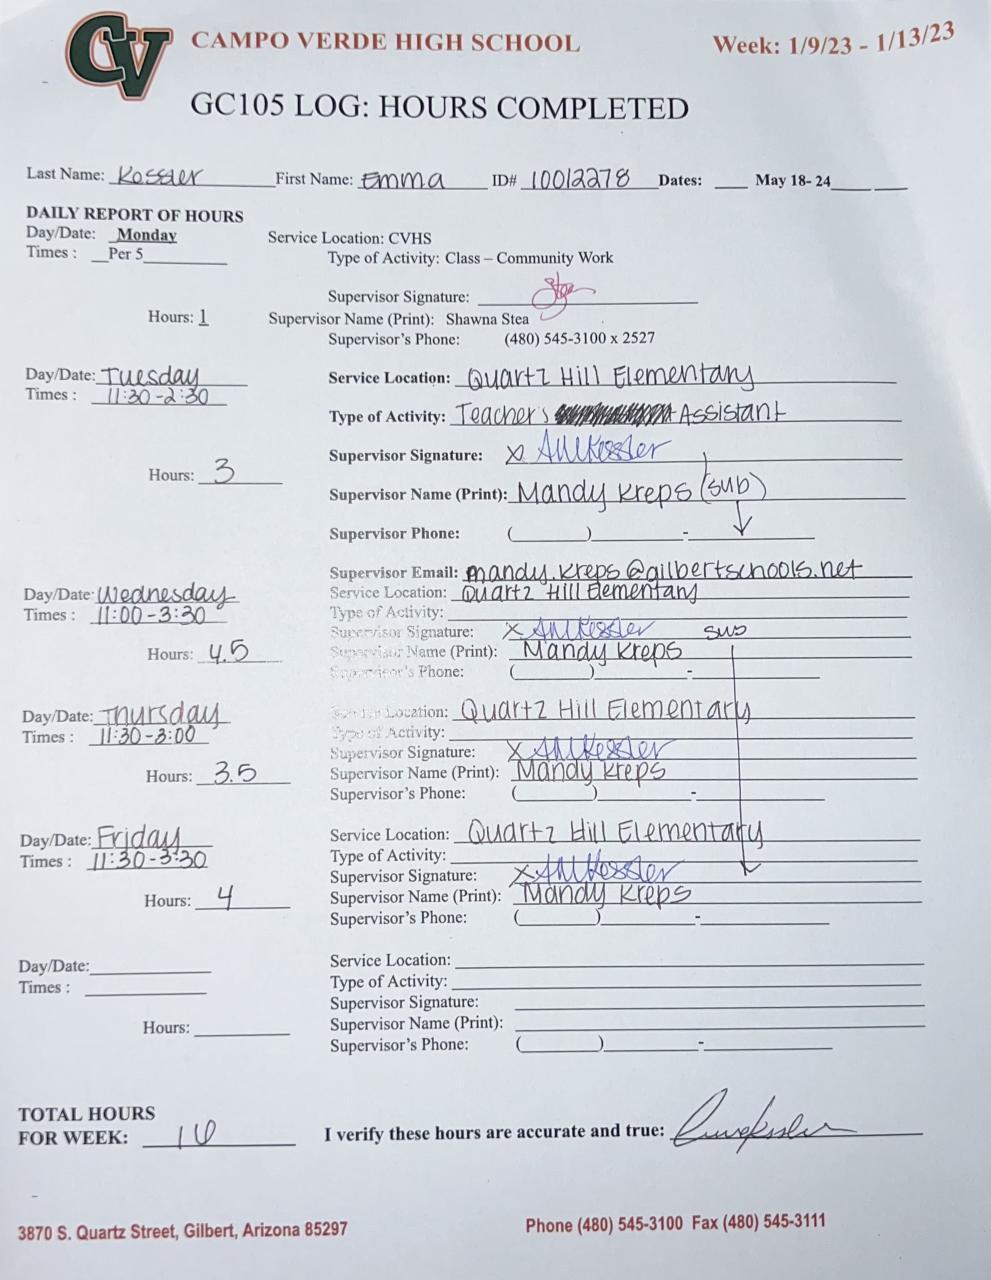 CV CAMPO VERDE HIGH SCHOOL Week: 1/9/23 - 1/13/23
GC105 LOG: HOURS COMPLETED
Last Name: Kessler First Name: Emma ID# 10012278 Dates: ____ May 18- 24____ ____
DAILY REPORT OF HOURS
Day/Date: Monday Service Location: CVHS
Times : Per 5 Type of Activity: Class – Community Work
Supervisor Signature:
Hours: 1 Supervisor Name (Print): Shawna Stea
Supervisor's Phone: (480) 545-3100 x 2527
Day/Date: Tuesday Service Location: Quartz Hill Elementary
Times : 11:30-2:30
Type of Activity: Teacher's Assistant
Supervisor Signature: x AMKessler
Hours: 3
Supervisor Name (Print): Mandy Kreps (sub)
Supervisor Phone: (______)______-______
Supervisor Email: mandy.kreps@gilbertschools.net
Day/Date: Wednesday Service Location: Quartz Hill Elementary
Times : 11:00-3:30 Type of Activity:
Supervisor Signature: x AMKessler sub
Hours: 4.5 Supervisor Name (Print): Mandy Kreps
Supervisor's Phone: (______)______-______
Day/Date: Thursday Service Location: Quartz Hill Elementary
Times : 11:30-3:00 Type of Activity:
Supervisor Signature: x AMKessler
Hours: 3.5 Supervisor Name (Print): Mandy Kreps
Supervisor's Phone: (______)______-______
Day/Date: Friday Service Location: Quartz Hill Elementary
Times : 11:30-3:30 Type of Activity:
Supervisor Signature: x AMKessler
Hours: 4 Supervisor Name (Print): Mandy Kreps
Supervisor's Phone: (______)______-______
Day/Date: Service Location:
Times : Type of Activity:
Supervisor Signature:
Hours: Supervisor Name (Print):
Supervisor's Phone: (______)______-______
TOTAL HOURS
FOR WEEK: 16 I verify these hours are accurate and true:
3870 S. Quartz Street, Gilbert, Arizona 85297 Phone (480) 545-3100 Fax (480) 545-3111